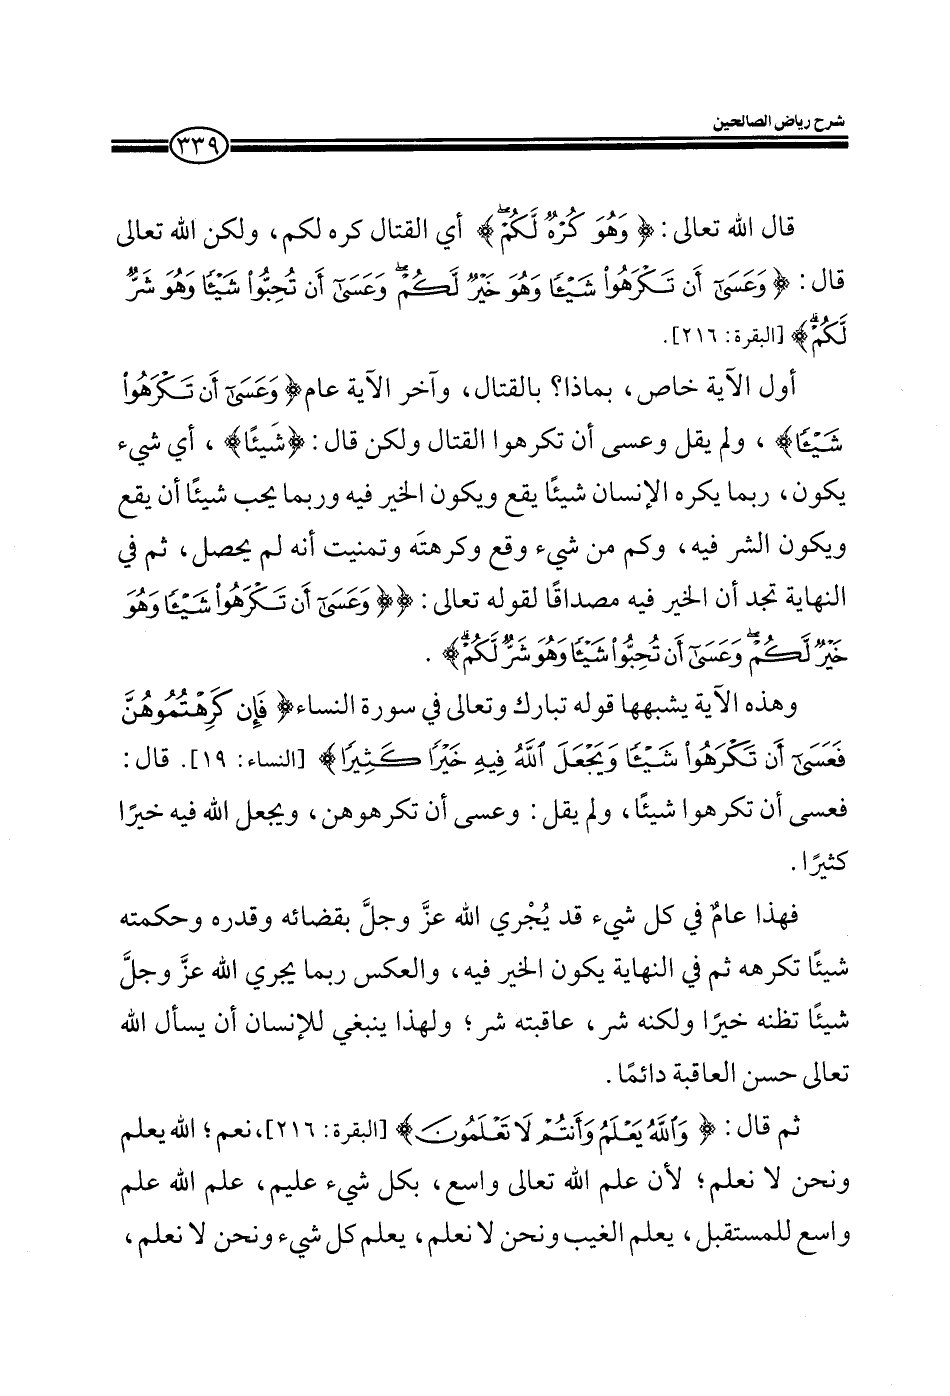 شرح رياض الصالحين
٣٣٩
قال الله تعالى: ﴿ وَهُوَ كُرْهٌ لَّكُمْ ۖ﴾ أي القتال كره لكم، ولكن الله تعالى
قال: ﴿ وَعَسَىٰٓ أَن تَكْرَهُوا۟ شَيْـًٔا وَهُوَ خَيْرٌ لَّكُمْ ۖ وَعَسَىٰٓ أَن تُحِبُّوا۟ شَيْـًٔا وَهُوَ شَرٌّ
لَّكُمْ ۗ﴾ [البقرة: ٢١٦].
أول الآية خاص، بماذا؟ بالقتال، وآخر الآية عام﴿ وَعَسَىٰٓ أَن تَكْرَهُوا۟
شَيْـًٔا﴾ ، ولم يقل وعسى أن تكرهوا القتال ولكن قال: ﴿شَيئًا﴾ ، أي شيء
يكون، ربما يكره الإنسان شيئًا يقع ويكون الخير فيه وربما يحب شيئًا أن يقع
ويكون الشر فيه، وكم من شيء وقع وكرهتَه وتمنيت أنه لم يحصل، ثم في
النهاية تجد أن الخير فيه مصداقًا لقوله تعالى: ﴿﴿ وَعَسَىٰٓ أَن تَكْرَهُوا۟ شَيْـًٔا وَهُوَ
خَيْرٌ لَّكُمْ ۖ وَعَسَىٰٓ أَن تُحِبُّوا۟ شَيْـًٔا وَهُوَ شَرٌّ لَّكُمْ ۗ﴾ .
وهذه الآية يشبهها قوله تبارك وتعالى في سورة النساء﴿ فَإِن كَرِهْتُمُوهُنَّ
فَعَسَىٰٓ أَن تَكْرَهُوا۟ شَيْـًٔا وَيَجْعَلَ ٱللَّهُ فِيهِ خَيْرًا كَثِيرًا﴾ [النساء: ١٩]. قال:
فعسى أن تكرهوا شيئًا، ولم يقل: وعسى أن تكرهوهن، ويجعل الله فيه خيرًا
كثيرًا.
فهذا عامٌ في كل شيء قد يُجْري الله عزَّ وجلَّ بقضائه وقدره وحكمته
شيئًا تكرهه ثم في النهاية يكون الخير فيه، والعكس ربما يجري الله عزَّ وجلَّ
شيئًا تظنه خيرًا ولكنه شر، عاقبته شر؛ ولهذا ينبغي للإنسان أن يسأل الله
تعالى حسن العاقبة دائمًا.
ثم قال: ﴿ وَٱللَّهُ يَعْلَمُ وَأَنتُمْ لَا تَعْلَمُونَ﴾ [البقرة: ٢١٦]،نعم؛ الله يعلم
ونحن لا نعلم؛ لأن علم الله تعالى واسع، بكل شيء عليم، علم الله علم
واسع للمستقبل، يعلم الغيب ونحن لا نعلم، يعلم كل شيء ونحن لا نعلم،